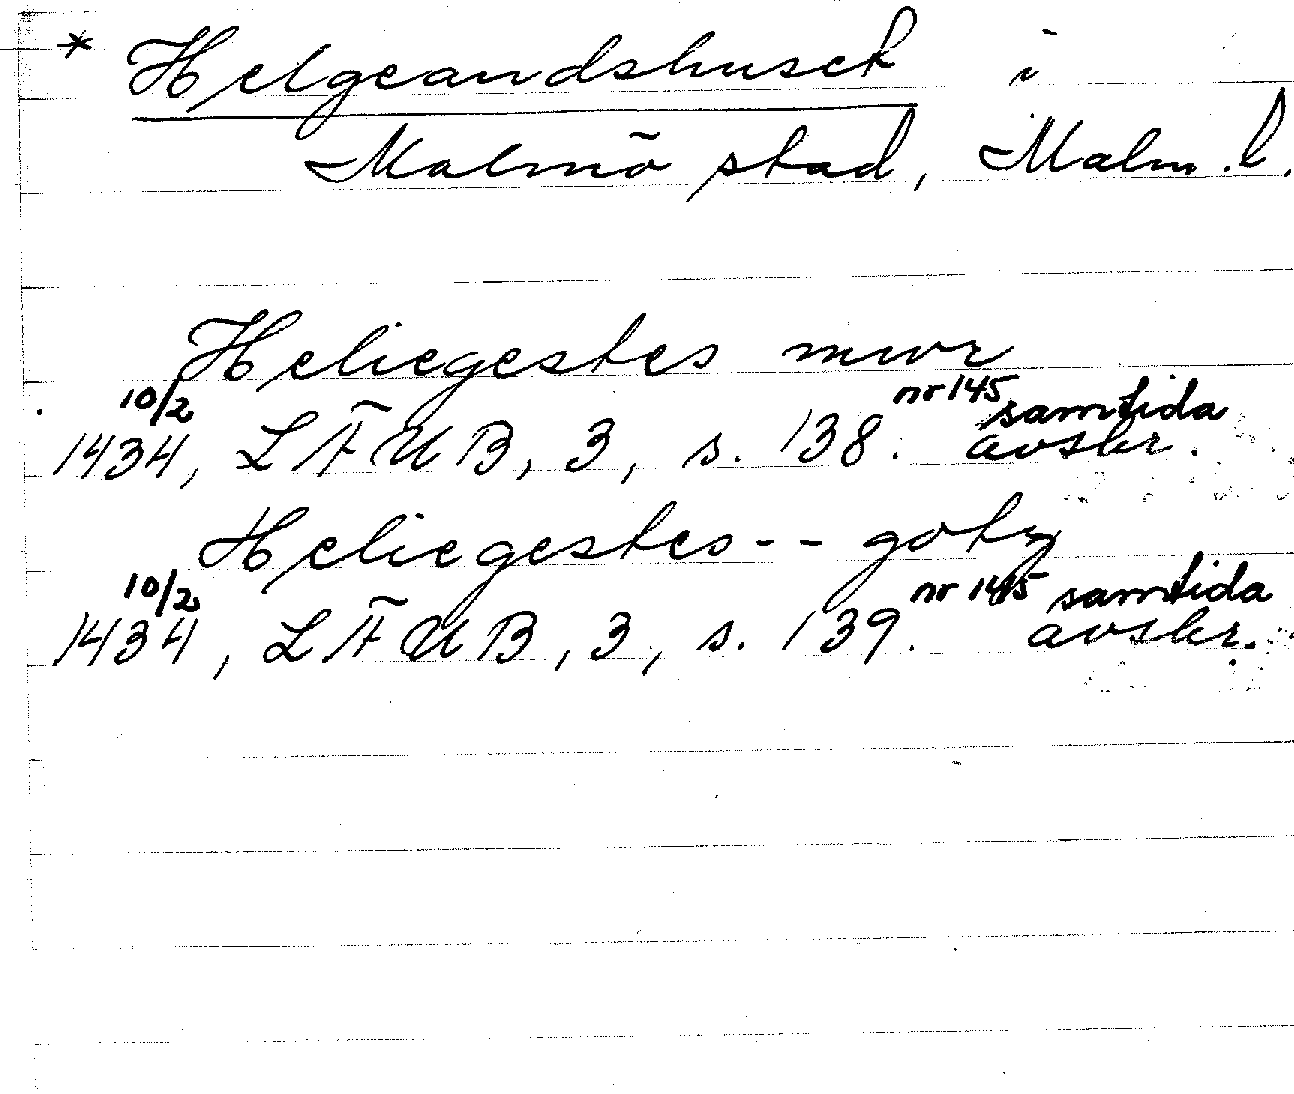 * Helgeandshuset i
Malmö stad, Malm. l.
Heliegestes mwr
10/2 nr 145 samtida
1434, LÄUB, 3, s. 138. avskr.
Heliegestes -- goty
10/2 nr 145 samtida
1434, LÄUB, 3, s. 139. avskr.